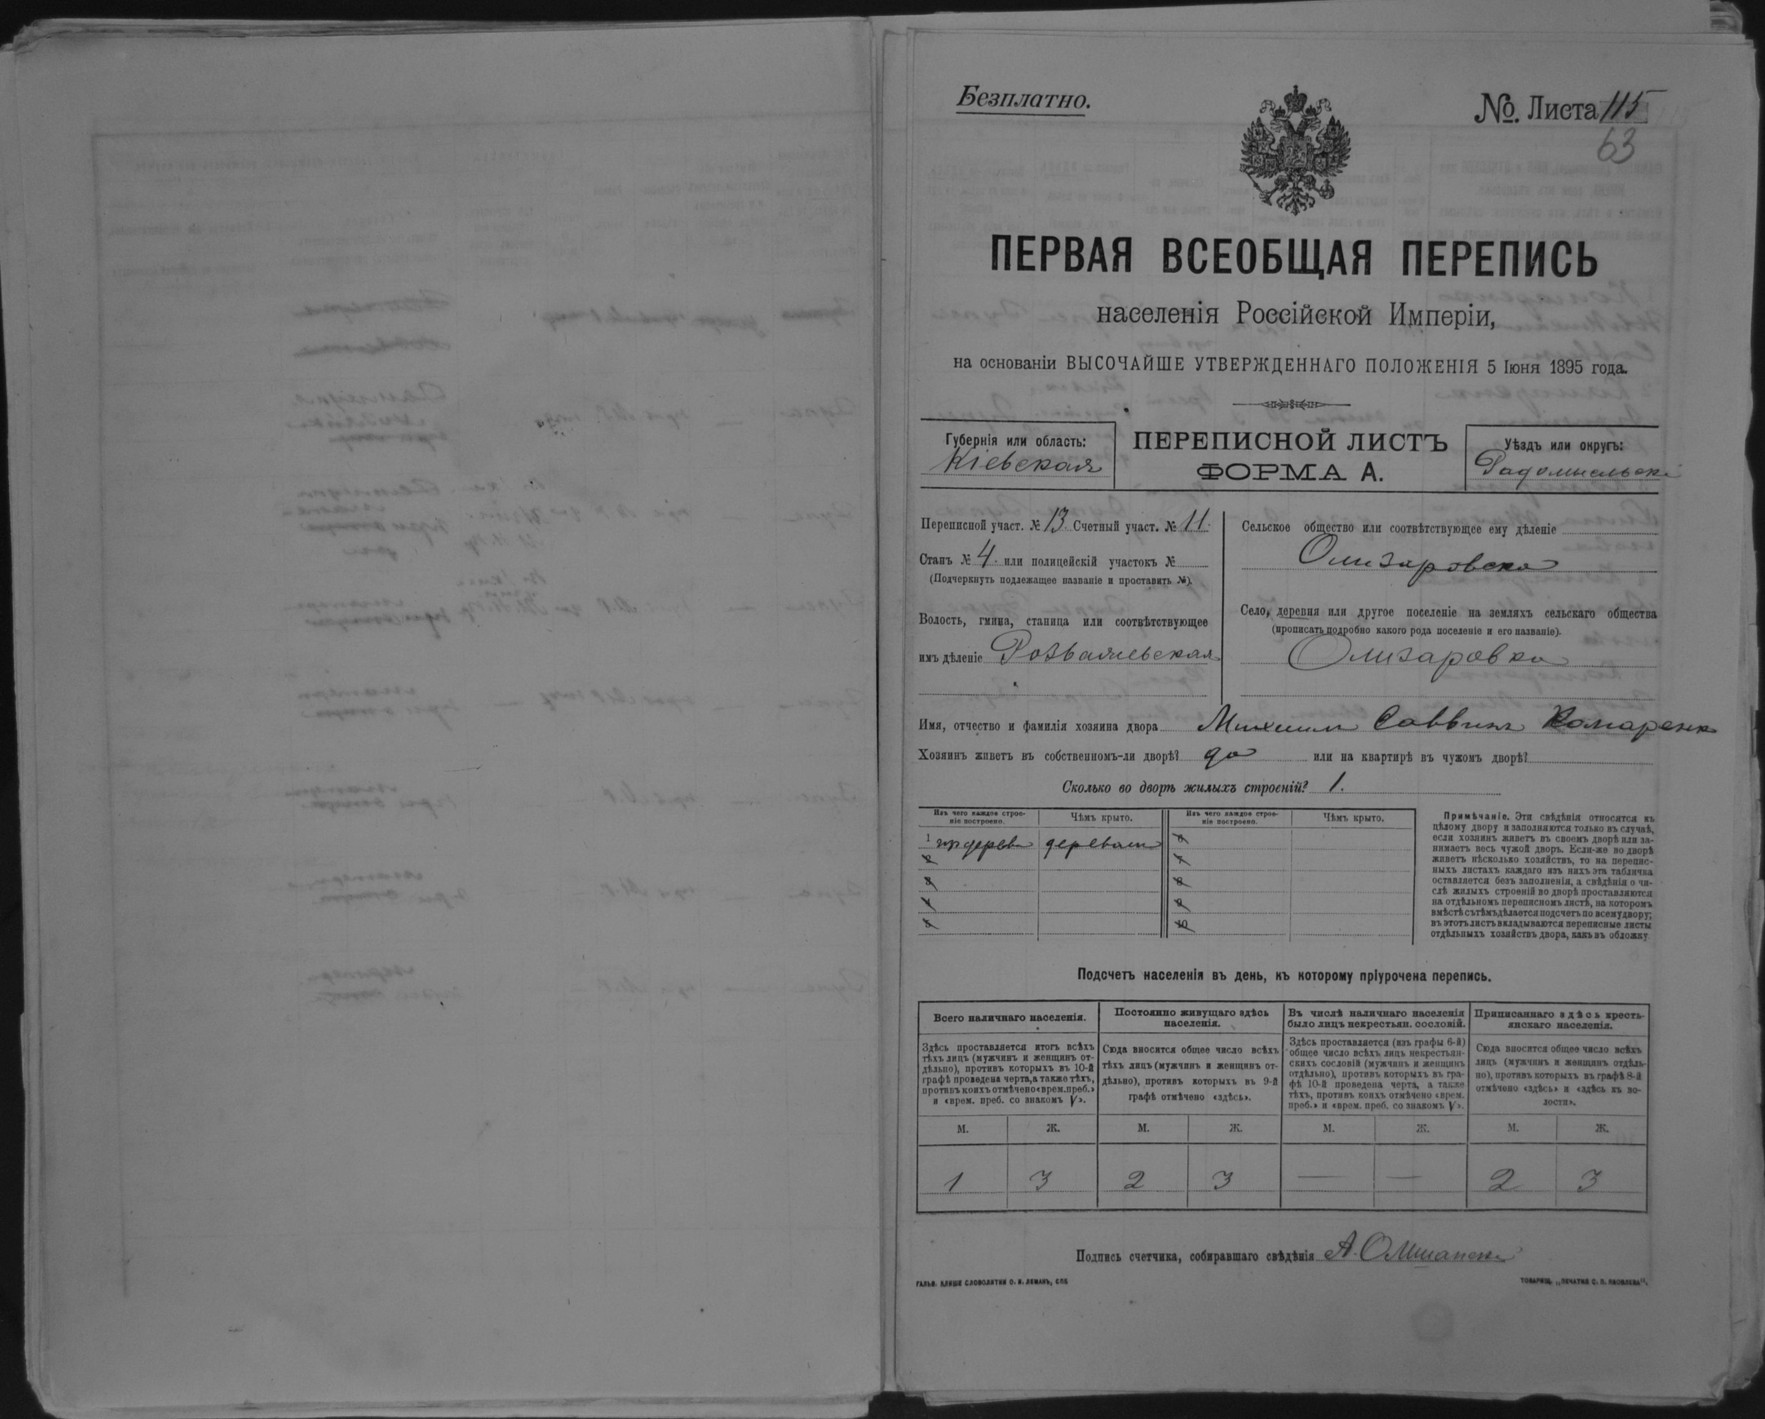 Безплатно.
№. Листа 115
63
ПЕРВАЯ ВСЕОБЩАЯ ПЕРЕПИСЬ
населенія Россійской Имперіи,
на основаніи ВЫСОЧАЙШЕ УТВЕРЖДЕННАГО ПОЛОЖЕНІЯ 5 Іюня 1895 года.
Губернія или область:
Кіевская
ПЕРЕПИСНОЙ ЛИСТЪ
ФОРМА А.
Уѣздъ или округъ:
Радомысльскі
Переписной участ. № 13 Счетный участ. № 11.
Станъ № 4. или полицейскій участокъ №
(Подчеркнуть подлежащее названіе и проставить №).
Волость, гмина, станица или соотвѣтствующее
имъ дѣленіе Розважевская
Сельское общество или соотвѣтствующее ему дѣленіе
Олизаровско
Село, деревня или другое поселеніе на земляхъ сельскаго общества
(прописать подробно какого рода поселеніе и его названіе).
Олизаровка
Имя, отчество и фамилія хозяина двора Михаил Саввин Комаренко
Хозяинъ живетъ въ собственномъ-ли дворѣ? да или на квартирѣ въ чужомъ дворѣ?
Сколько во дворѣ жилыхъ строеній? 1.
Изъ чего каждое строе-
ніе построено.
Чѣмъ крыто.
Изъ чего каждое строе-
ніе построено.
Чѣмъ крыто.
1 дерева деревом
2
3
4
5
6
7
8
9
10
Примѣчаніе. Эти свѣдѣнія относятся къ
цѣлому двору и заполняются только въ случаѣ,
если хозяинъ живетъ въ своемъ дворѣ или за-
нимаетъ весь чужой дворъ. Если-же во дворѣ
живетъ нѣсколько хозяйствъ, то на перепис-
ныхъ листахъ каждаго изъ нихъ эта табличка
оставляется безъ заполненія, а свѣдѣнія о чи-
слѣ жилыхъ строеній во дворѣ проставляются
на отдѣльномъ переписномъ листѣ, на которомъ
вмѣстѣ съ тѣмъ дѣлается подсчетъ по всему двору;
въ этотъ листъ вкладываются переписные листы
отдѣльныхъ хозяйствъ двора, какъ въ обложку.
Подсчетъ населенія въ день, къ которому пріурочена перепись.
Всего наличнаго населенія.
Здѣсь проставляется итогъ всѣхъ
тѣхъ лицъ (мужчинъ и женщинъ от-
дѣльно), противъ которыхъ въ 10-й
графѣ проведена черта, а также тѣхъ,
противъ коихъ отмѣчено «врем. преб.»
и «врем. преб. со знакомъ V».
Постоянно живущаго здѣсь
населенія.
Сюда вносится общее число всѣхъ
тѣхъ лицъ (мужчинъ и женщинъ от-
дѣльно), противъ которыхъ въ 9-й
графѣ отмѣчено «здѣсь».
Въ числѣ наличнаго населенія
было лицъ некрестьян. сословій.
Здѣсь проставляется (изъ графы 6-й)
общее число всѣхъ лицъ некрестьян-
скихъ сословій (мужчинъ и женщинъ
отдѣльно), противъ которыхъ въ гра-
фѣ 10-й проведена черта, а также
тѣхъ, противъ коихъ отмѣчено «врем.
преб.» и «врем. преб. со знакомъ V».
Приписаннаго здѣсь кресть-
янскаго населенія.
Сюда вносится общее число всѣхъ
лицъ (мужчинъ и женщинъ отдѣль-
но), противъ которыхъ въ графѣ 8-й
отмѣчено «здѣсь» и «здѣсь къ во-
лости».
М. Ж. М. Ж. М. Ж. М. Ж.
1 3 2 3 — — 2 3
Подпись счетчика, собиравшаго свѣдѣнія А. Омшанск
ГАЛЬВ. КЛИШЕ СЛОВОЛИТНИ О. И. ЛЕМАНЪ, СПБ.
ТОВАРИЩ. „ПЕЧАТНЯ С. П. ЯКОВЛЕВА".